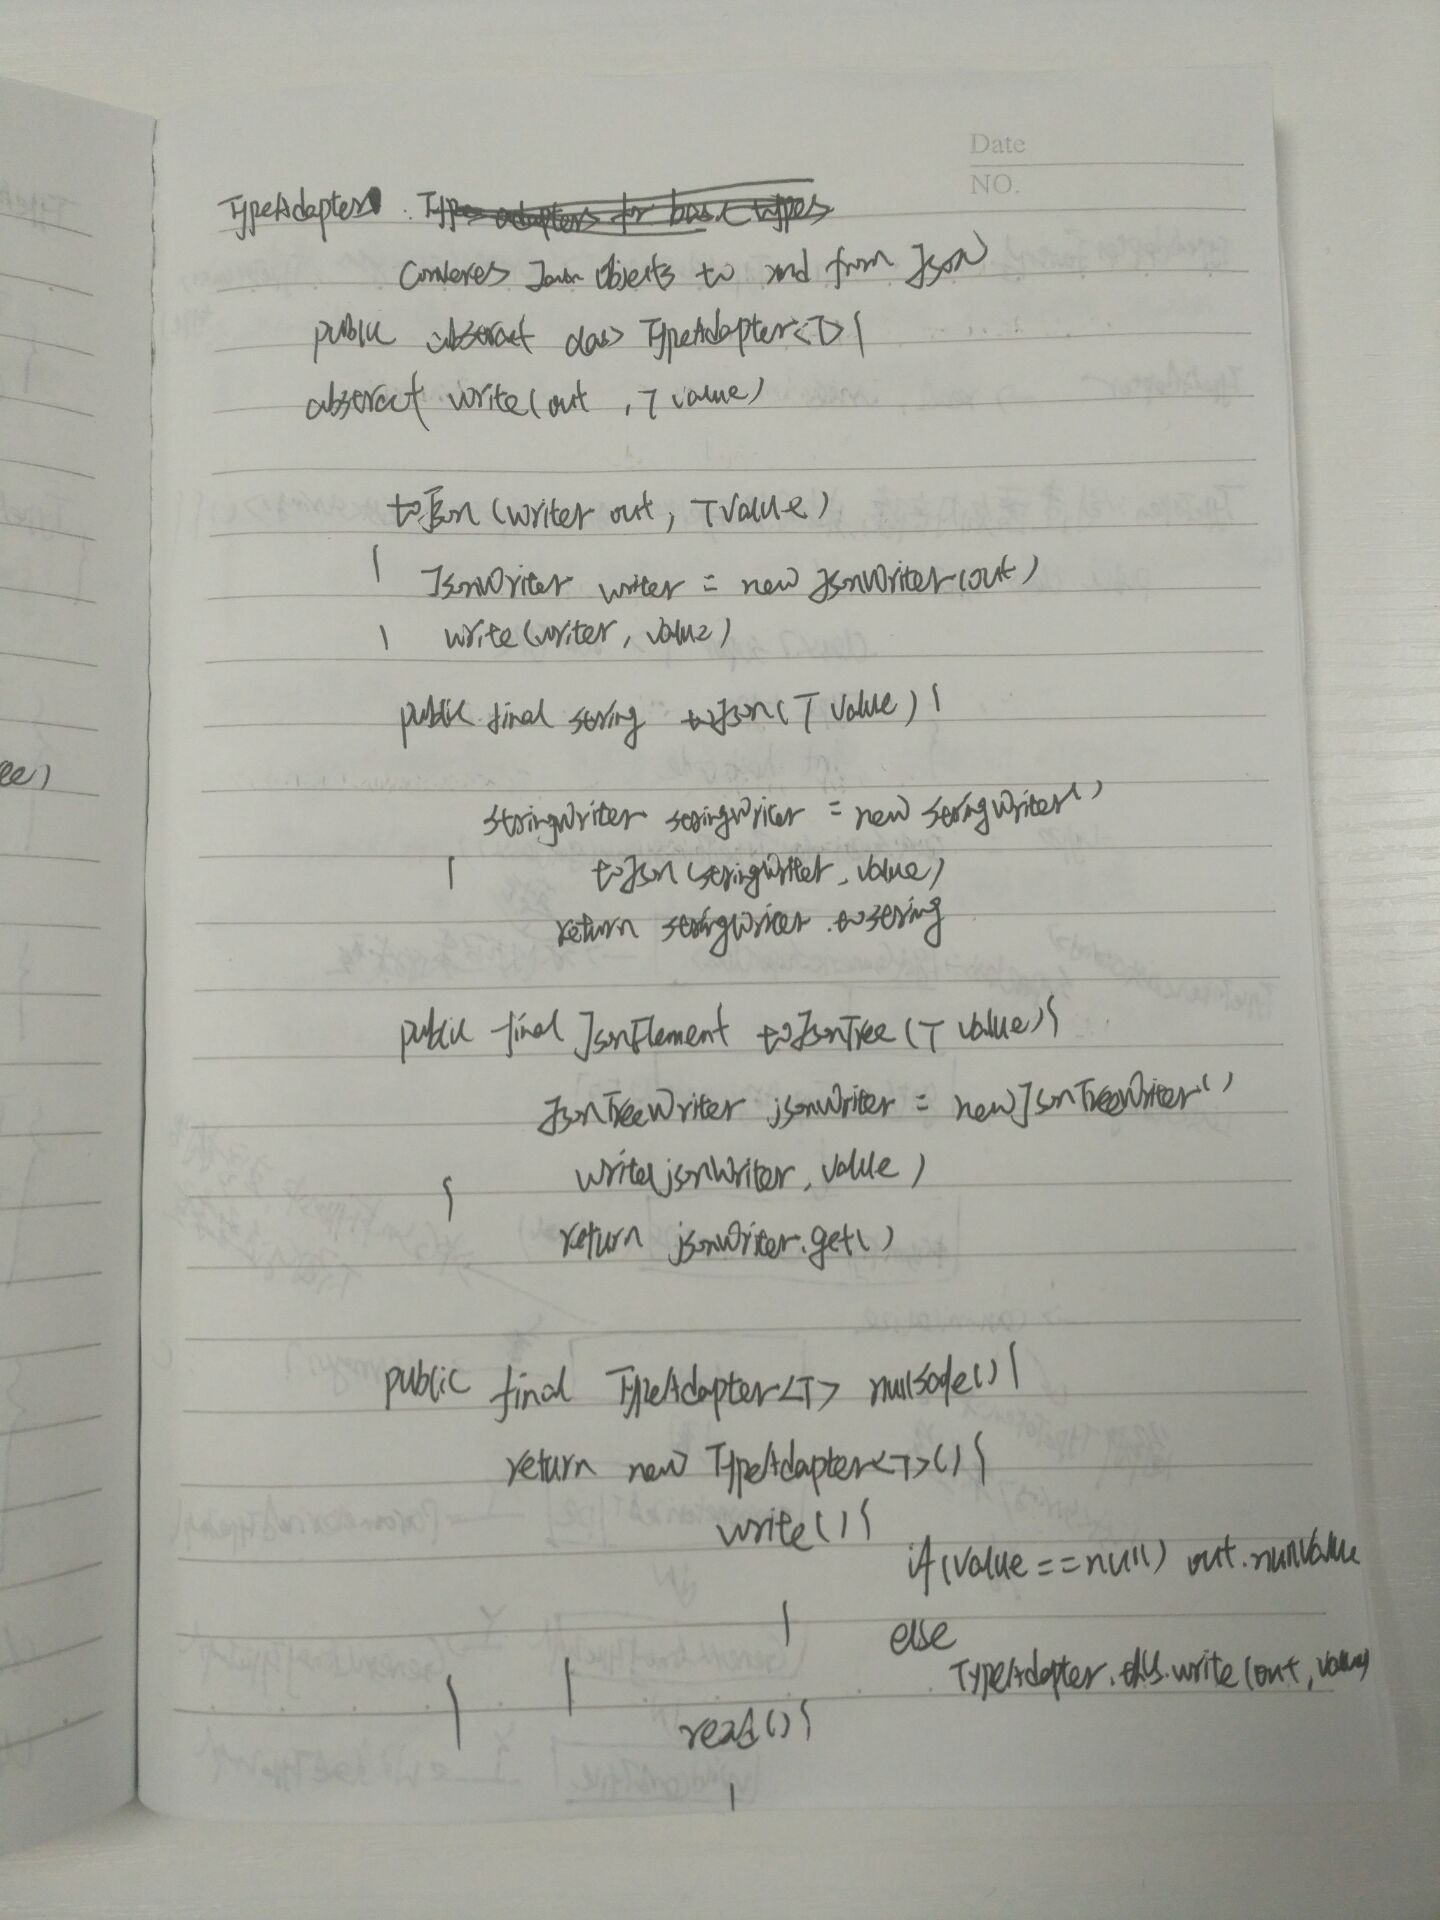 Date
NO.
TypeAdapter : Type adapters for basic types
Converes Java Objects to and from Json
public abstract class TypeAdapter<T>{
abstract write(out , T value)
toJson (writer out, T value)
{ JsonWriter writer = new JsonWriter(out)
} write(writer, value)
public final string toJson(T value) {
stringWriter stringWriter = new stringWriter()
} toJson (stringWriter, value)
return stringWriter.tostring
public final JsonElement toJsonTree(T value){
JsonTreeWriter jsonWriter = new JsonTreeWriter()
write(jsonWriter, value)
}
return jsonWriter.get()
public final TypeAdapter<T> nullSafe(){
return new TypeAdapter<T>(){
write(){
if(value==null) out.nullValue
} else
TypeAdapter.this.write(out, value)
} }
read(){
}
ee)